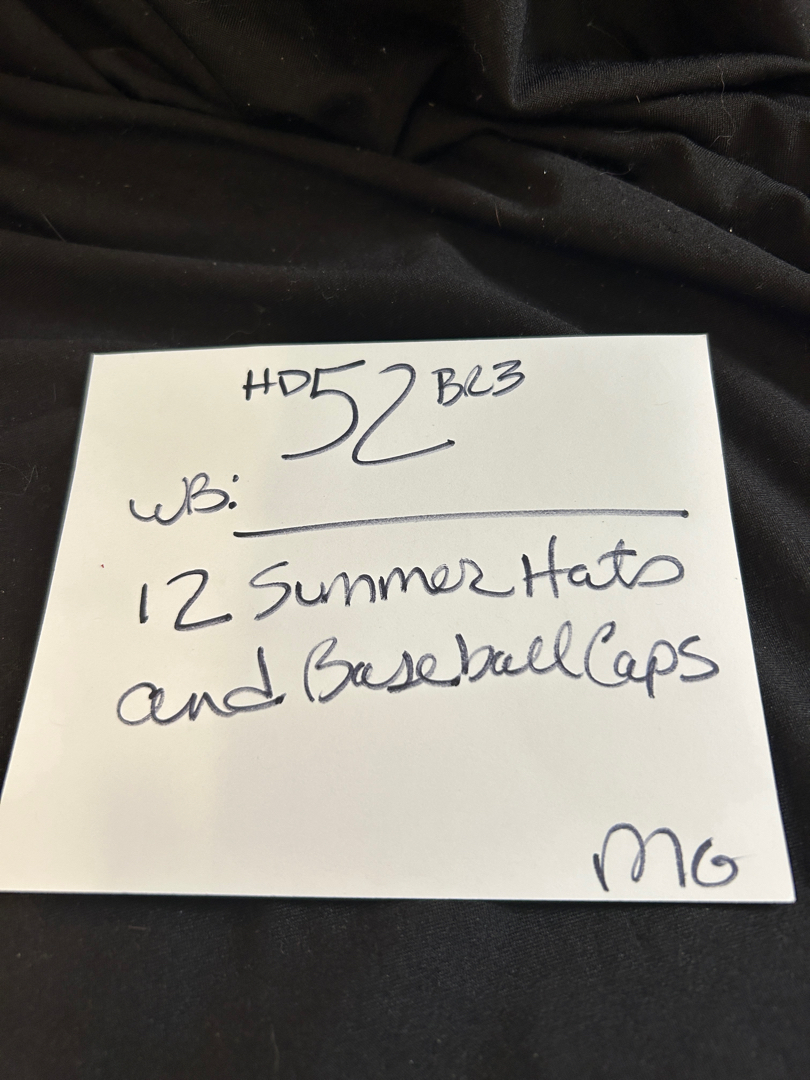 HD 52 BR3
WB: ____________
12 Summer Hats
and Baseball Caps
MG